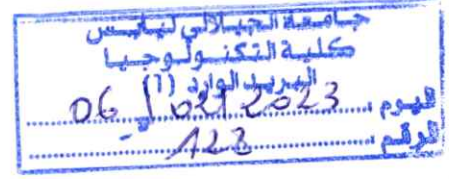 جامعة الجيلالي ليابس
كلية التكنولوجيا
البريد الوارد (1)
اليوم 06 / 02 / 2023
الرقم 123